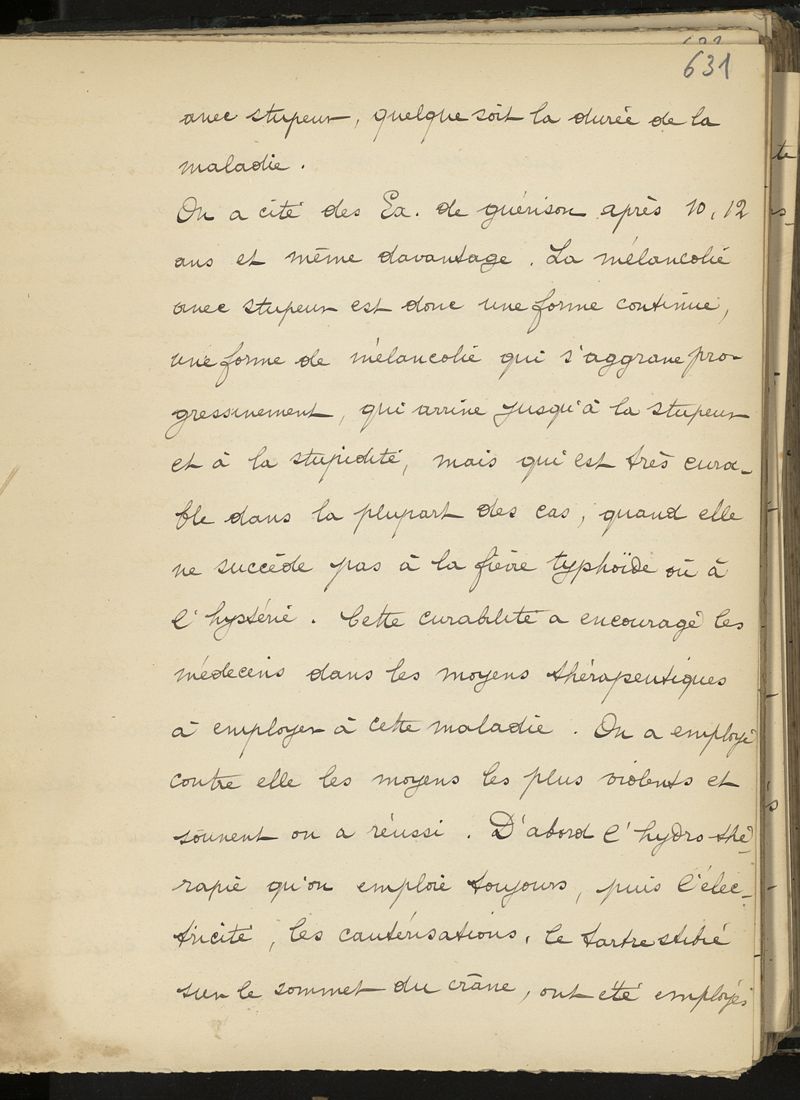 631
avec stupeur, quelque soit la durée de la
maladie.
On a cité des Ex. de guérison après 10, 12
ans et même davantage. La mélancolie
avec stupeur est donc une forme continue,
une forme de mélancolie qui s'aggrave pro-
gressivement, qui arrive jusqu'à la stupeur
et à la stupidité, mais qui est très cura-
ble dans la plupart des cas, quand elle
ne succède pas à la fièvre typhoïde où à
l'hystérie. Cette curabilité a encouragé les
médecins dans les moyens thérapeutiques
à employer à cette maladie. On a employé
contre elle les moyens les plus violents et
souvent on a réussi. D'abord l'hydrothé-
rapie qu'on emploie toujours, puis l'élec-
tricité, les cautérisations, le tartre stibié
sur le sommet du crâne, ont été employés